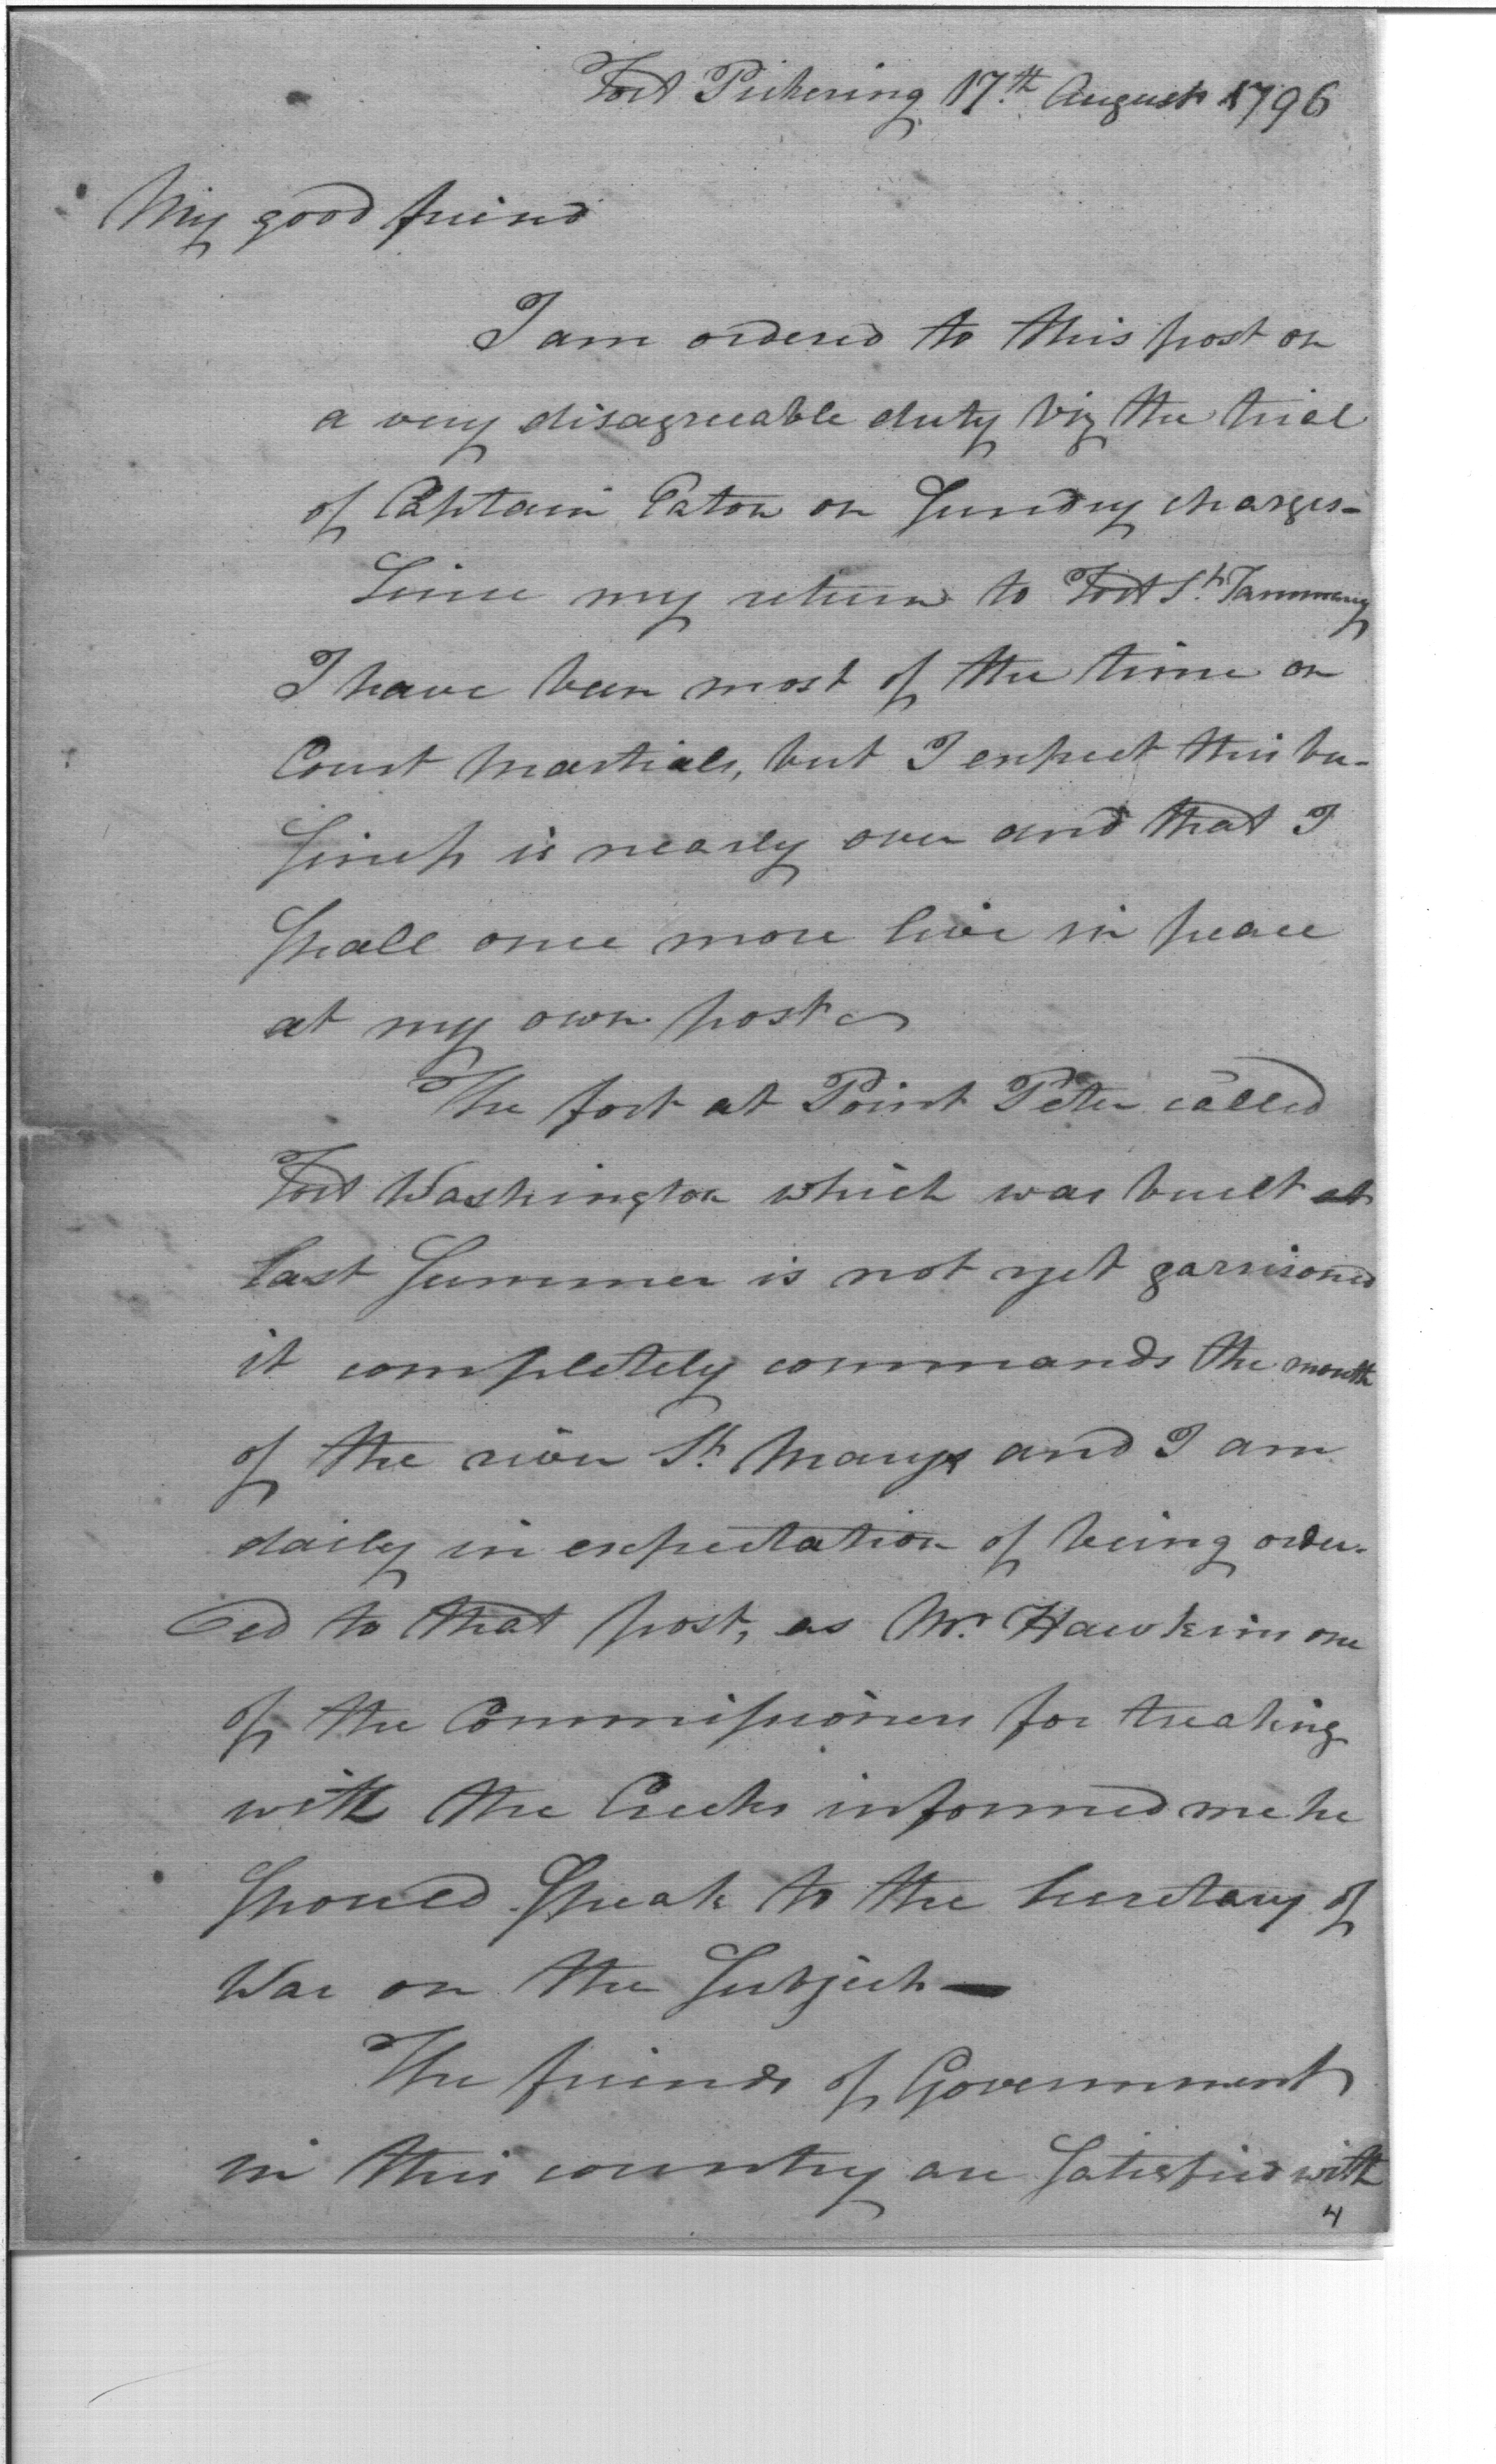 Fort Pickering 17.th August 1796
My good friend
I am ordered to this post on
a very disagreeable duty Viz the trial
of Captain Eaton on Sundry charges–
Since my return to Fort St. Tammany
I have been most of the time on
Court Martials, but I expect this bu-
siness is nearly over and that I
shall once more live in peace
at my own post
The fort at Point Peter called
Fort Washington which was built at
last Summer is not yet garrisoned
it completely commands the mouth
of the river St. Marys and I am
daily in expectation of being order-
ed to that post, as Mr. Hawkins one
of the Commissioners for treating
with the Creeks informed me he
should Speak to the Secretary of
War on the Subject —
The friends of Government
in this country are Satisfied with
4